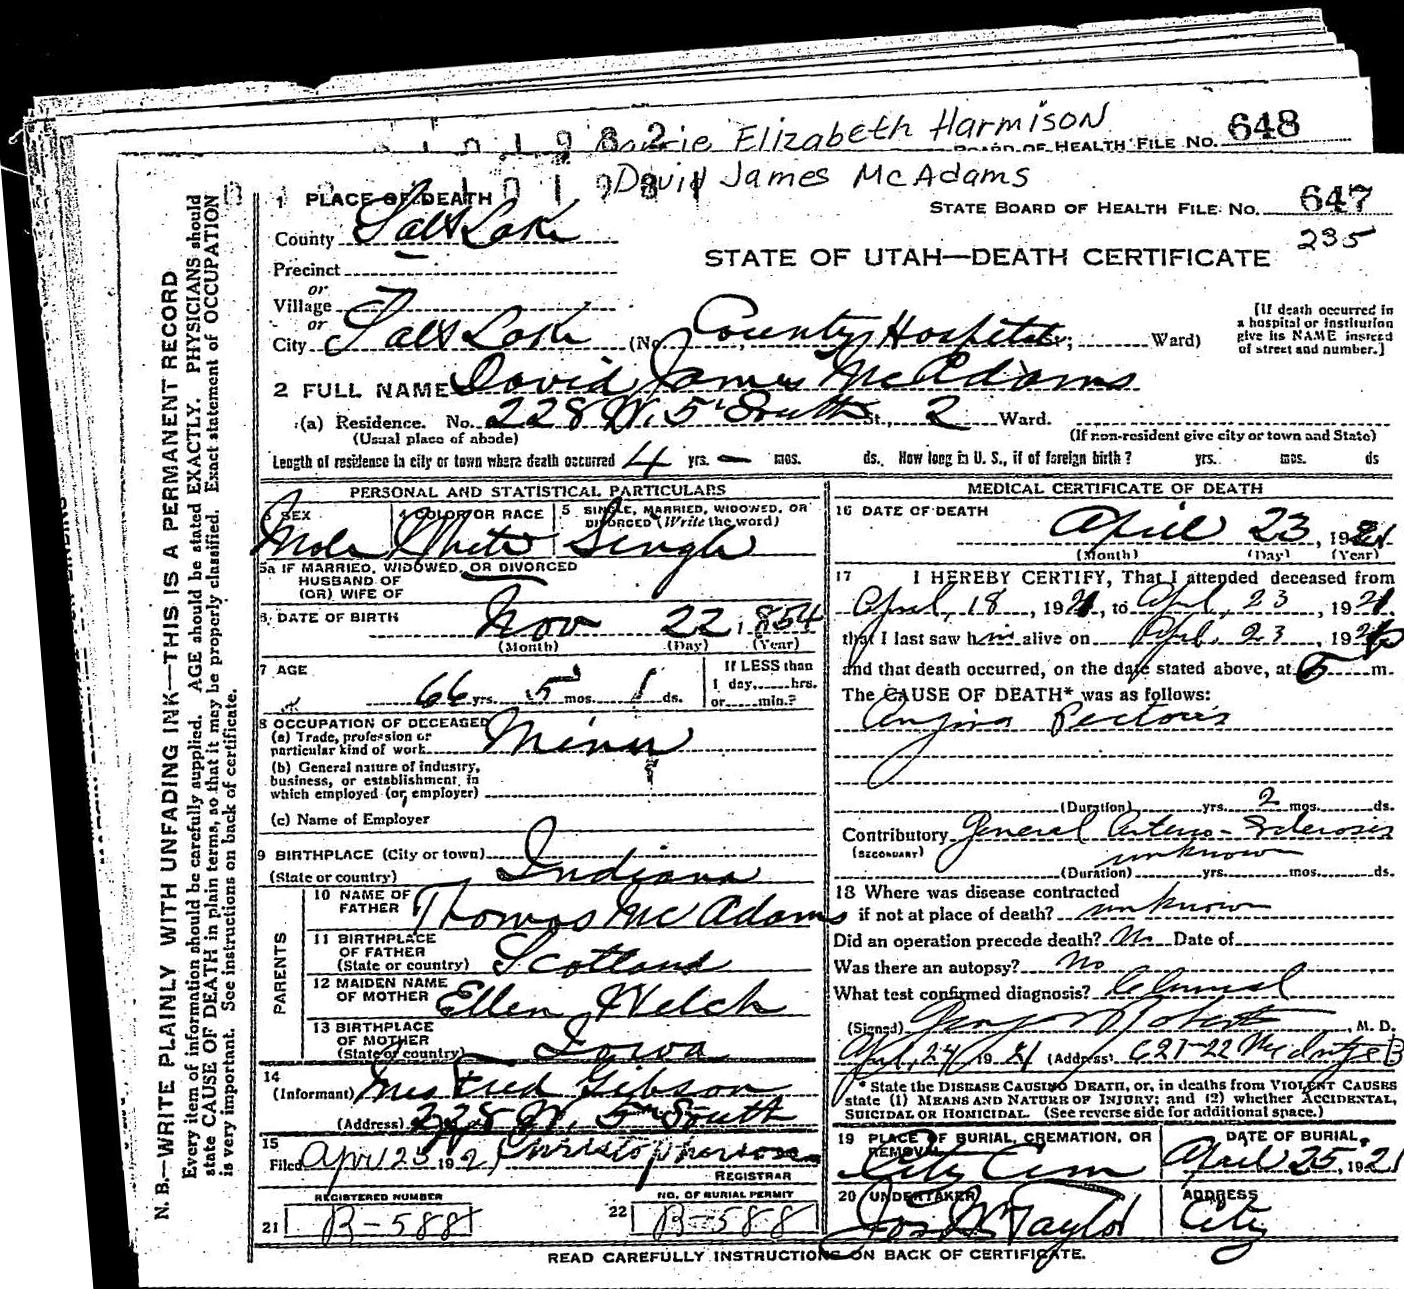 Elizabeth Harmison
BOARD OF HEALTH FILE NO. 648
David James McAdams
1 PLACE OF DEATH
STATE BOARD OF HEALTH FILE No. 647
235
County Salt Lake
STATE OF UTAH—DEATH CERTIFICATE
Precinct
or
Village
or
City Salt Lake (No. County Hospital St.; Ward)
[If death occurred in
a hospital or institution
give its NAME instead
of street and number.]
2 FULL NAME David James McAdams
(a) Residence. No. 228 W. 5th South St., 2 Ward.
(Usual place of abode) (If non-resident give city or town and State)
Length of residence in city or town where death occurred 4 yrs. — mos. ds. How long in U. S., if of foreign birth? yrs. mos. ds
PERSONAL AND STATISTICAL PARTICULARS
3 SEX 4 COLOR OR RACE 5 SINGLE, MARRIED, WIDOWED, OR
DIVORCED (Write the word)
Male White Single
5a IF MARRIED, WIDOWED, OR DIVORCED
HUSBAND OF
(OR) WIFE OF
6. DATE OF BIRTH Nov 22, 1854
(Month) (Day) (Year)
7 AGE 66 yrs. 5 mos. 1 ds.
If LESS than
1 day,......hrs.
or......min.?
8 OCCUPATION OF DECEASED
(a) Trade, profession or
particular kind of work Miner
(b) General nature of industry,
business, or establishment in
which employed (or employer)
(c) Name of Employer
9 BIRTHPLACE (City or town)
(State or country) Indiana
PARENTS
10 NAME OF
FATHER Thomas McAdams
11 BIRTHPLACE
OF FATHER
(State or country) Scotland
12 MAIDEN NAME
OF MOTHER Ellen Welch
13 BIRTHPLACE
OF MOTHER
(State or country) Iowa
14
(Informant) Mrs Fred Gibson
(Address) 228 W. 5th South
15
Filed Apr 25 1921
REGISTRAR
REGISTERED NUMBER
21 B-588
NO. OF BURIAL PERMIT
22 B-588
MEDICAL CERTIFICATE OF DEATH
16 DATE OF DEATH
April 23, 1921
(Month) (Day) (Year)
17 I HEREBY CERTIFY, That I attended deceased from
April, 18, 1921, to Apl, 23, 1921.
that I last saw him alive on Apl, 23, 1921
and that death occurred, on the date stated above, at 5 P m.
The CAUSE OF DEATH* was as follows:
Angina Pectoris
(Duration) yrs. 2 mos. ds.
Contributory General Arterio-Sclerosis
(SECONDARY) unknown
(Duration) yrs. mos. ds.
18 Where was disease contracted
if not at place of death? unknown
Did an operation precede death? No Date of
Was there an autopsy? No
What test confirmed diagnosis? Clinical
(Signed) Roberts, M. D.
Apl, 24 1921 (Address) 621-22 McIntyre B
* State the DISEASE CAUSING DEATH, or, in deaths from VIOLENT CAUSES
state (1) MEANS AND NATURE OF INJURY; and (2) whether ACCIDENTAL,
SUICIDAL OR HOMICIDAL. (See reverse side for additional space.)
19 PLACE OF BURIAL, CREMATION, OR
REMOVAL
City Cem
DATE OF BURIAL,
April 25, 1921
20 UNDERTAKER
Jos Wm Taylor
ADDRESS
City
READ CAREFULLY INSTRUCTIONS ON BACK OF CERTIFICATE.
N. B.—WRITE PLAINLY WITH UNFADING INK—THIS IS A PERMANENT RECORD
Every item of information should be carefully supplied. AGE should be stated EXACTLY. PHYSICIANS should
state CAUSE OF DEATH in plain terms, so that it may be properly classified. Exact statement of OCCUPATION
is very important. See instructions on back of certificate.